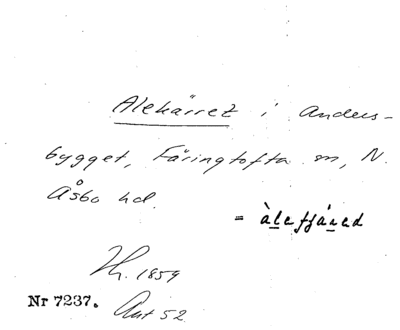 Alekärret i Anders-
bygget, Färingtofta sn, N.
Åsbo hd.
= àlefjáred
Th. 1859
Nr 7237. Ant 52